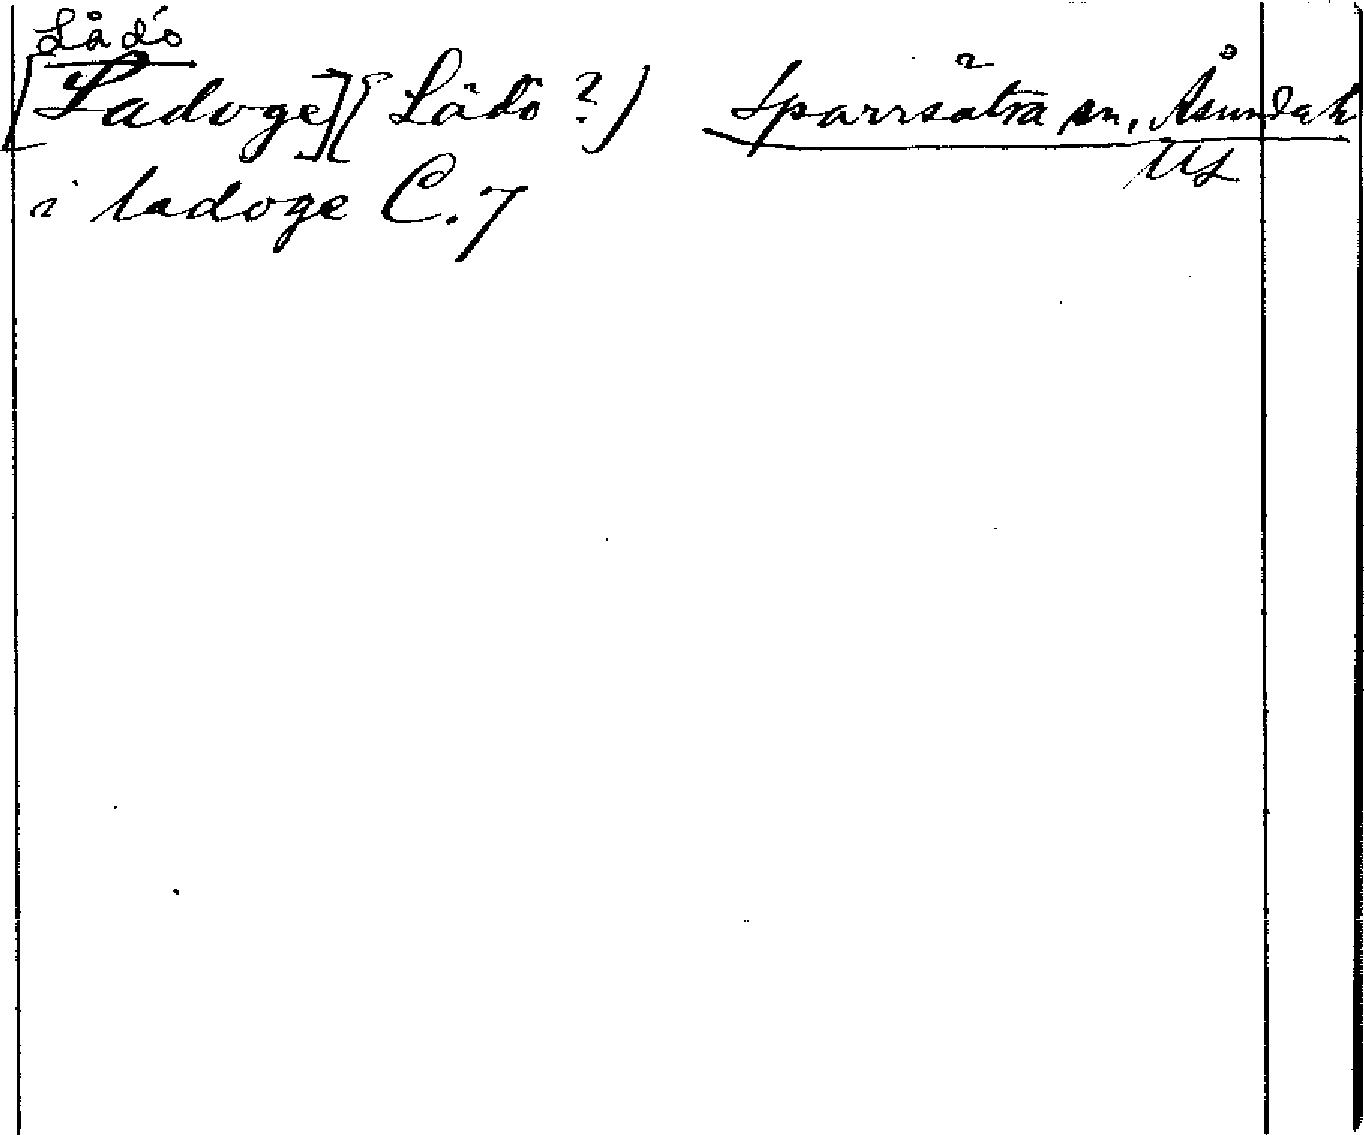 Lådö
[Ladoge] (Lådö ?) Sparrsätra sn, Åsunda h
i ladoge C. 7